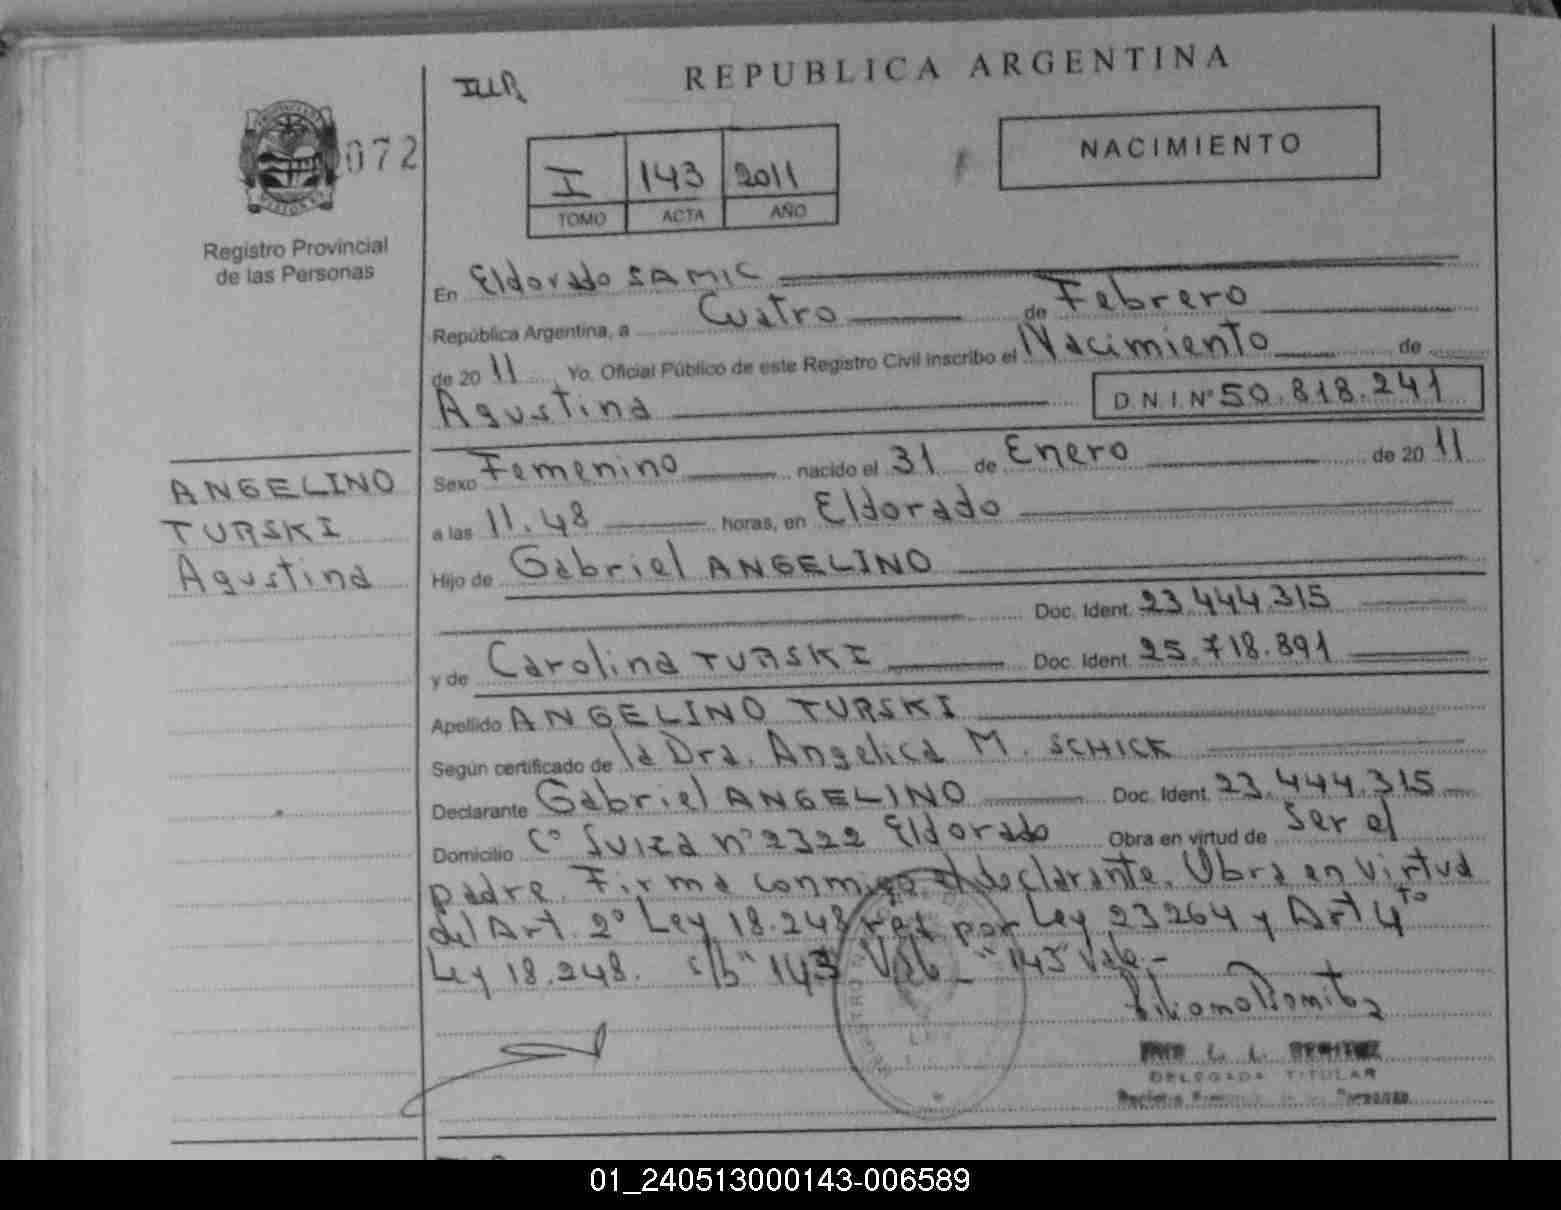 REPUBLICA ARGENTINA
072
I 143 2011
TOMO ACTA AÑO
NACIMIENTO
Registro Provincial
de las Personas
En Eldorado SAMIC
República Argentina, a Cuatro de Febrero
de 2011 Yo, Oficial Público de este Registro Civil inscribo el Nacimiento de
Agustina D.N.I.Nº 50.818.241
ANGELINO
TURSKI
Agustina
Sexo Femenino nacido el 31 de Enero de 2011
a las 11.48 horas, en Eldorado
Hijo de Gabriel ANGELINO
Doc. Ident. 23.444.315
y de Carolina TURSKI Doc. Ident. 25.718.891
Apellido ANGELINO TURSKI
Según certificado de la Dra. Angelica M. SCHICK
Declarante Gabriel ANGELINO Doc. Ident. 23.444.315
Domicilio Cº Suiza nº 2322 Eldorado Obra en virtud de Ser el
padre. Firma conmigo el declarante. Obra en virtud
del Art. 2º Ley 18.248 por Ley 23264 y Art 4to
Ley 18.248. s/b "143 Vale - "143" Vale -
DELEGADA TITULAR
01_240513000143-006589